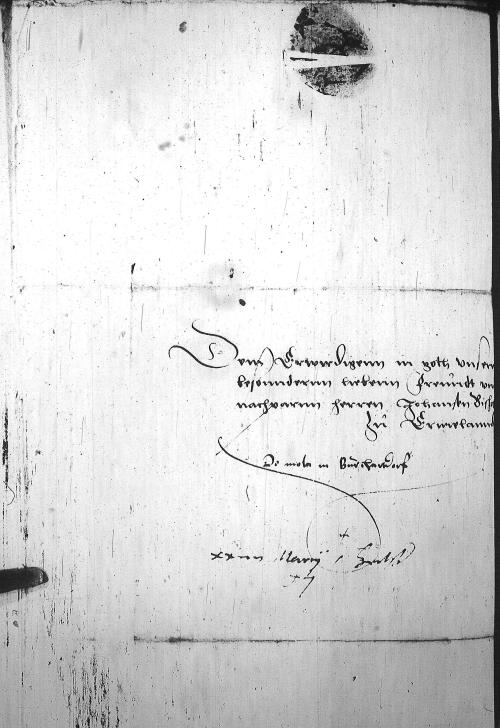 Dem Erwirdigenn in goth unsern
besonnderenn liebenn Freundt un
nachparnn herren Johansen Bisch
Zu Ermelannd
De mola in Burchardorf
xxiiii Marcij